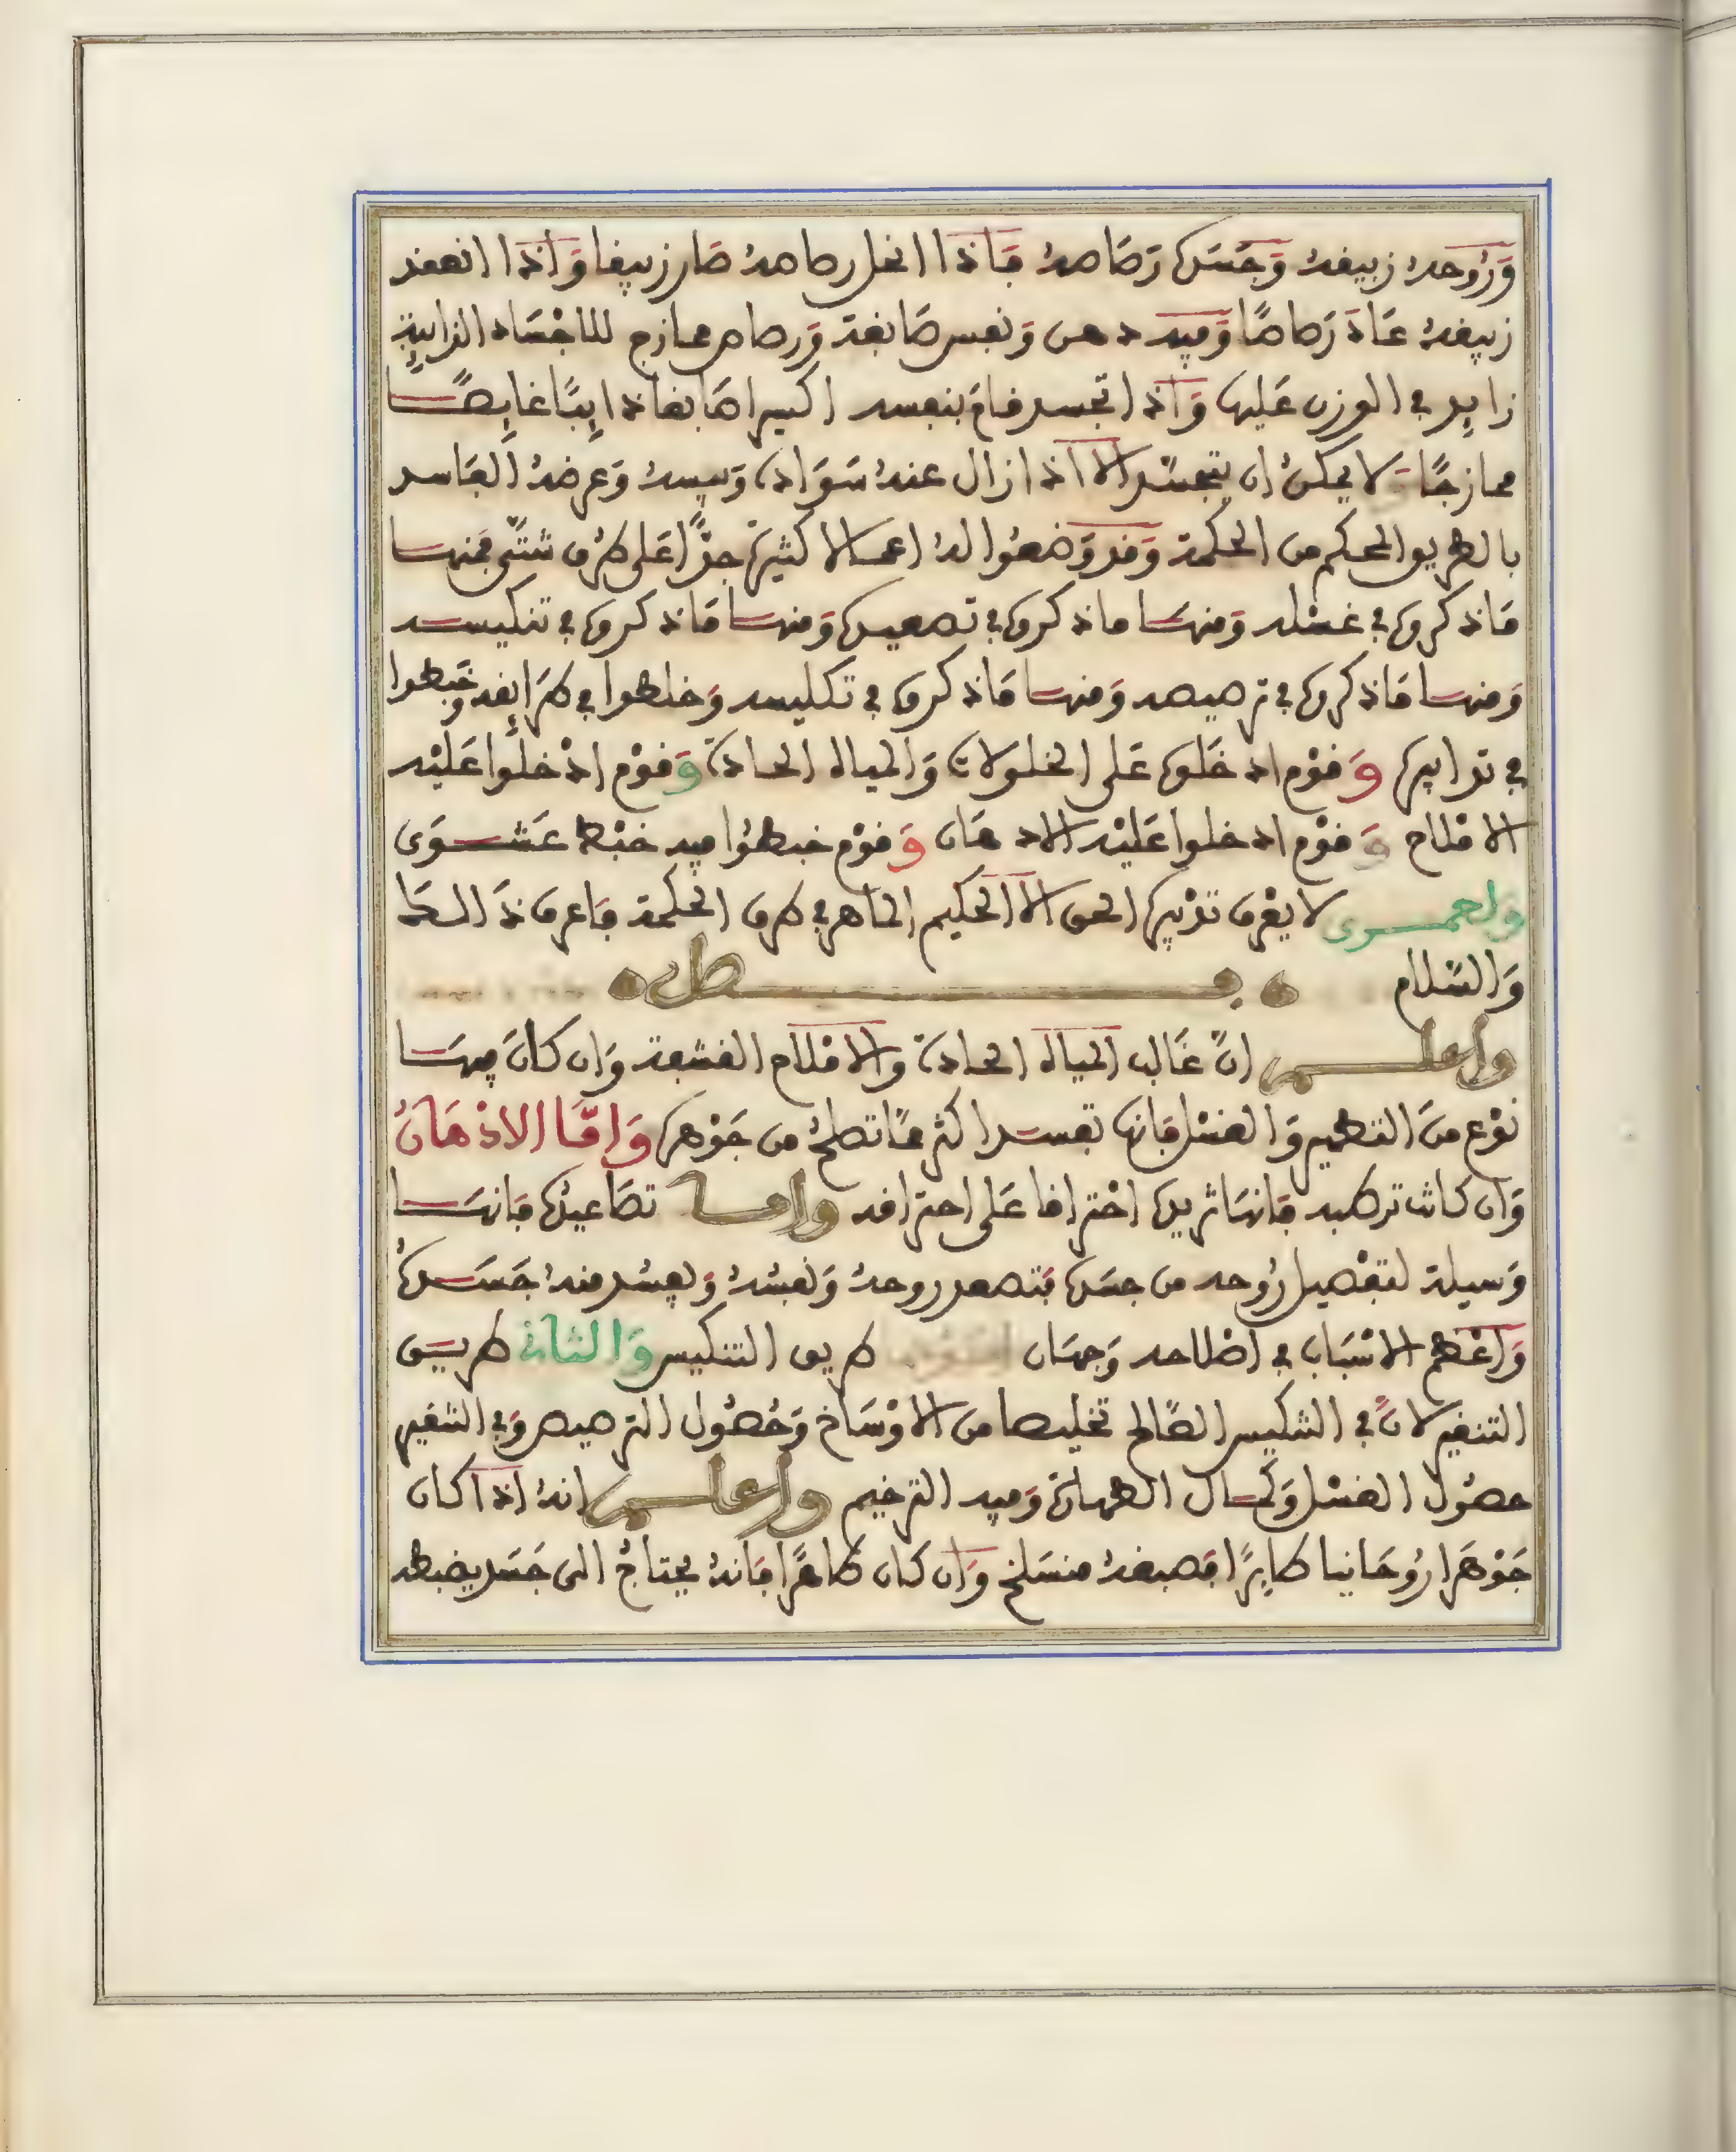 وَرُوحهُ زيبقهُ وَجَسَده رَصَاصهُ فَاذا انحل رصاصهُ صَار زيبقا وَاذا انعقد
زيبقهُ عَادَ رَصاصًا وَفيه دهن وَنفس صَابغة وَرصاص ممازج للاجْسَاد الذايبة
زايد في الوزن عَليها وَاذا تجسد قامَ بنفسه اكسيرا صَابغا ذايبًا غايصًا
ممازجًا وَلا يمكنُ ان يتجسّد الا اذا زال عنهُ سَوَاده وَيبسهُ وَعرضهُ الفَاسد
بالطريق المحكم من الحكمة وَقد وَضعُوا لهُ اعمالا كثيرة جدًّا على طرُق شتّى فمنها
مَا ذكروه في غسْله وَمنهَا ما ذكروه في تصعيده وَمنها مَا ذكروه في تنكيسه
وَمنها مَا ذكروه في ترصيصه وَمنها مَا ذكروه في تكليسه وَخلطوا في طرَايقه وَخَبطوا
في تدابيره وَقوْم ادخَلوه عَلى الخلولات وَالمياه الحادة وَقوْم ادْخلوا عَليْه
الاملاح وَقوْم ادخلوا عَليْه الادهَان وَقوْم خبطوُا فيه خبْط عَشْوَى
ولعمرى لا يعْرف تدْبيره الحق الا الحكيم الماهر في طرق الحكمة فاعرف ذَالك
وَالسّلام فصل
واعلم انّ غَالب المياه الحادة والاملاح القشفة وَان كانَ فيهَا
نوْع منَ التطهير وَالغسْل فانها تفسد اكثر ممّا تصلحُ من جَوْهره وَامّا الادْهَانُ
وَان كانت ترطبه فانهَا تزيده احْتراقا عَلى احتراقه واما تصَاعيدُه فانهَا
وَسيلة لتفْصيل رُوحه من جسَده فتصعد روحهُ وَنفسُهُ وَيفسُد منهُ جَسَدهُ
وَاعْظم الاسْبَاب في اصْلاحه وَجهَان طريق التنكيس وَالثانى طريق
التنقير لانّ في التنكيس الصّالح تخليصا من الاوْسَاخ وَحُصُول الترصيص وَفي التنقير
حصُول الغسْل وَكمال الطهارة وَفيه الترخيم واعلم انهُ اذا كان
جَوْهَرا رُوحَانيا طايرًا فصبغهُ منسَلخ وَان كان طاهرًا فانهُ يحتاجُ الى جَسَد يضبطه